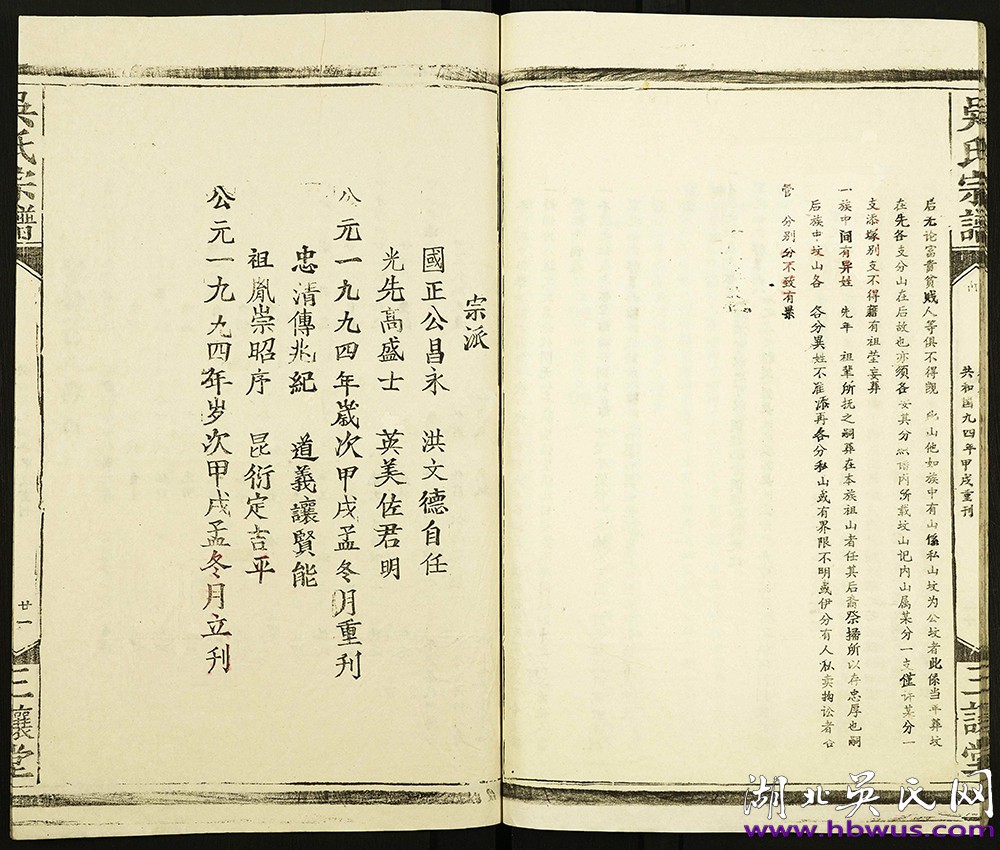 吳氏宗譜
共和国九四年甲戌重刊
三讓堂
后无论富貴貧贱人等俱不得觊 此山他如族中有山係私山坟为公坟者此係当年葬坟
在先各支分山在后故也亦须各安其分 谱内所载坟山记内山属某分一支僅许某分一
支添塚别支不得藉有祖茔妄葬
一族中间有异姓 先年 祖辈所抚之嗣葬在本族祖山者任其后裔祭掃所以存忠厚也嗣
后族中坟山各 各分異姓不准添再各分私山或有界限不明或伊分有人私卖构讼者
管 分别分不致有累
宗派
國正公昌永 洪文德自任
光先高盛士 英美佐君明
公元一九九四年歲次甲戌孟冬月重刊
忠清傳兆紀 道義讓賢能
祖胤崇昭序 昆衍定吉平
公元一九九四年岁次甲戌孟冬月立刊
吳氏宗譜
廿一
三讓堂
湖北吳氏网
www.hbwus.com